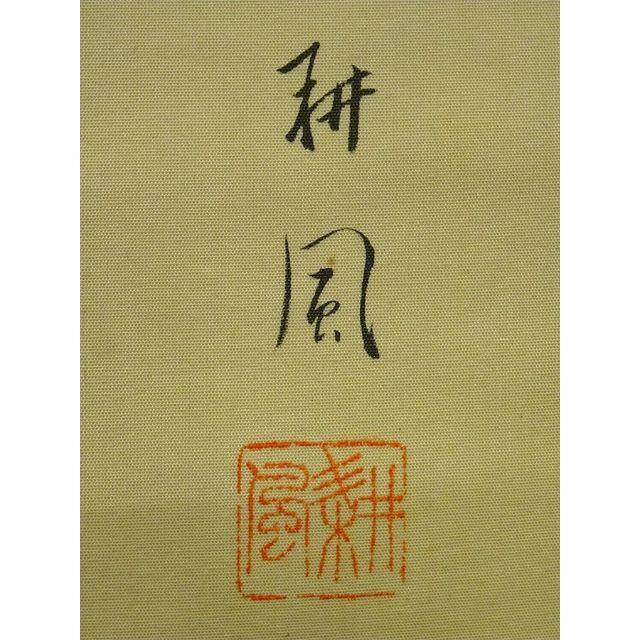 耕風
耕風